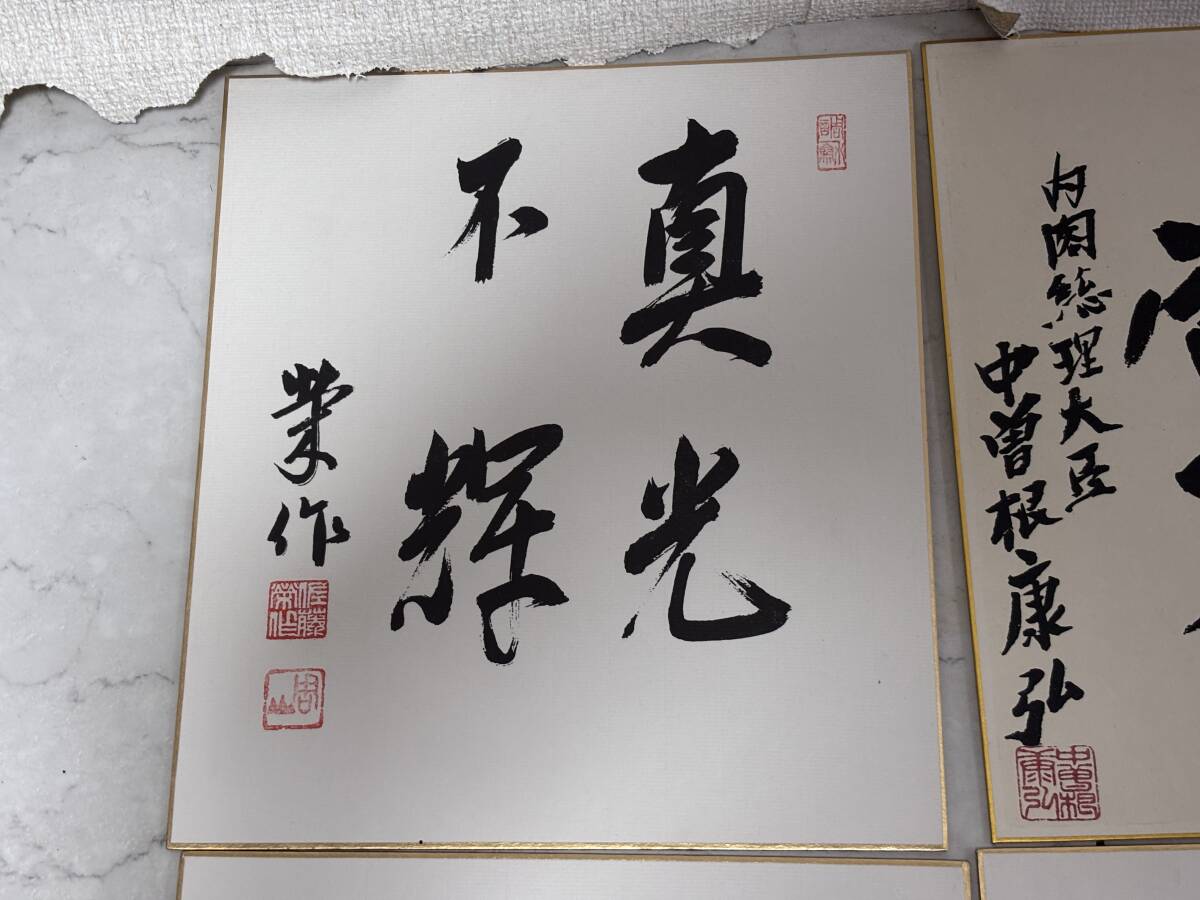 真光
不輝
榮作
佐藤榮作
周山
内閣総理大臣
中曽根康弘
中曽根康弘